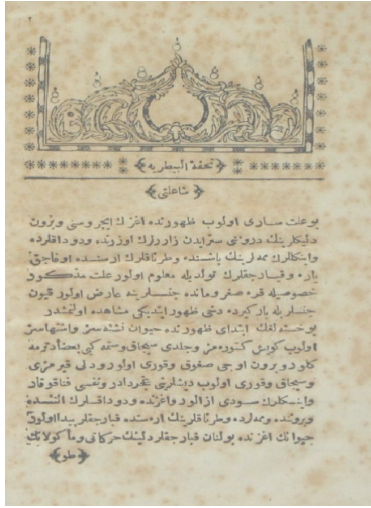 ٢
تحفة البيطريه
شاعلتى
بو علت سارى اولوب ظهورنده اغزك ايچروسنى وبرون
دليكلرينك دروننى ستر ايدن زارلرك اوزرنده ودوداقلرده
واينكلرك ممه لرينك باشنده وطرناقلرك ارەسنده اوفاجق
ياره وقبارجقلرك تولديله معلوم اولور علت مذكور
خصوصيله قره صغر ومانده جنسلرينه عارض اولور قيون
جنسلريله باركيرده دخى ظهور ايتديكى مشاهده اولنمشدر
بو خسته لغك ابتداى ظهورنده حيوان نشئه سز واشتهاسز
اولوب كويش كتورەمز وجلدى سيجاق وستمه كبى بعضا دترمه
كلور وبرون اوجى صغوق وقورى اولور ودلى قيرمزى
وسيجاق وقورى اولوب ديشلرينى غجردادر ونفسى فنا قوقار
واينكلرك سودى ازالور واغزنده ودوداقلرك التنده
وبروننده وممه لرده وطرناقلرينك ارەسنده قبارجقلر پيدا اولور
حيوانك اغزنده بولنان قبارجقلر دلينك حركاتى وماكولاتك
طو